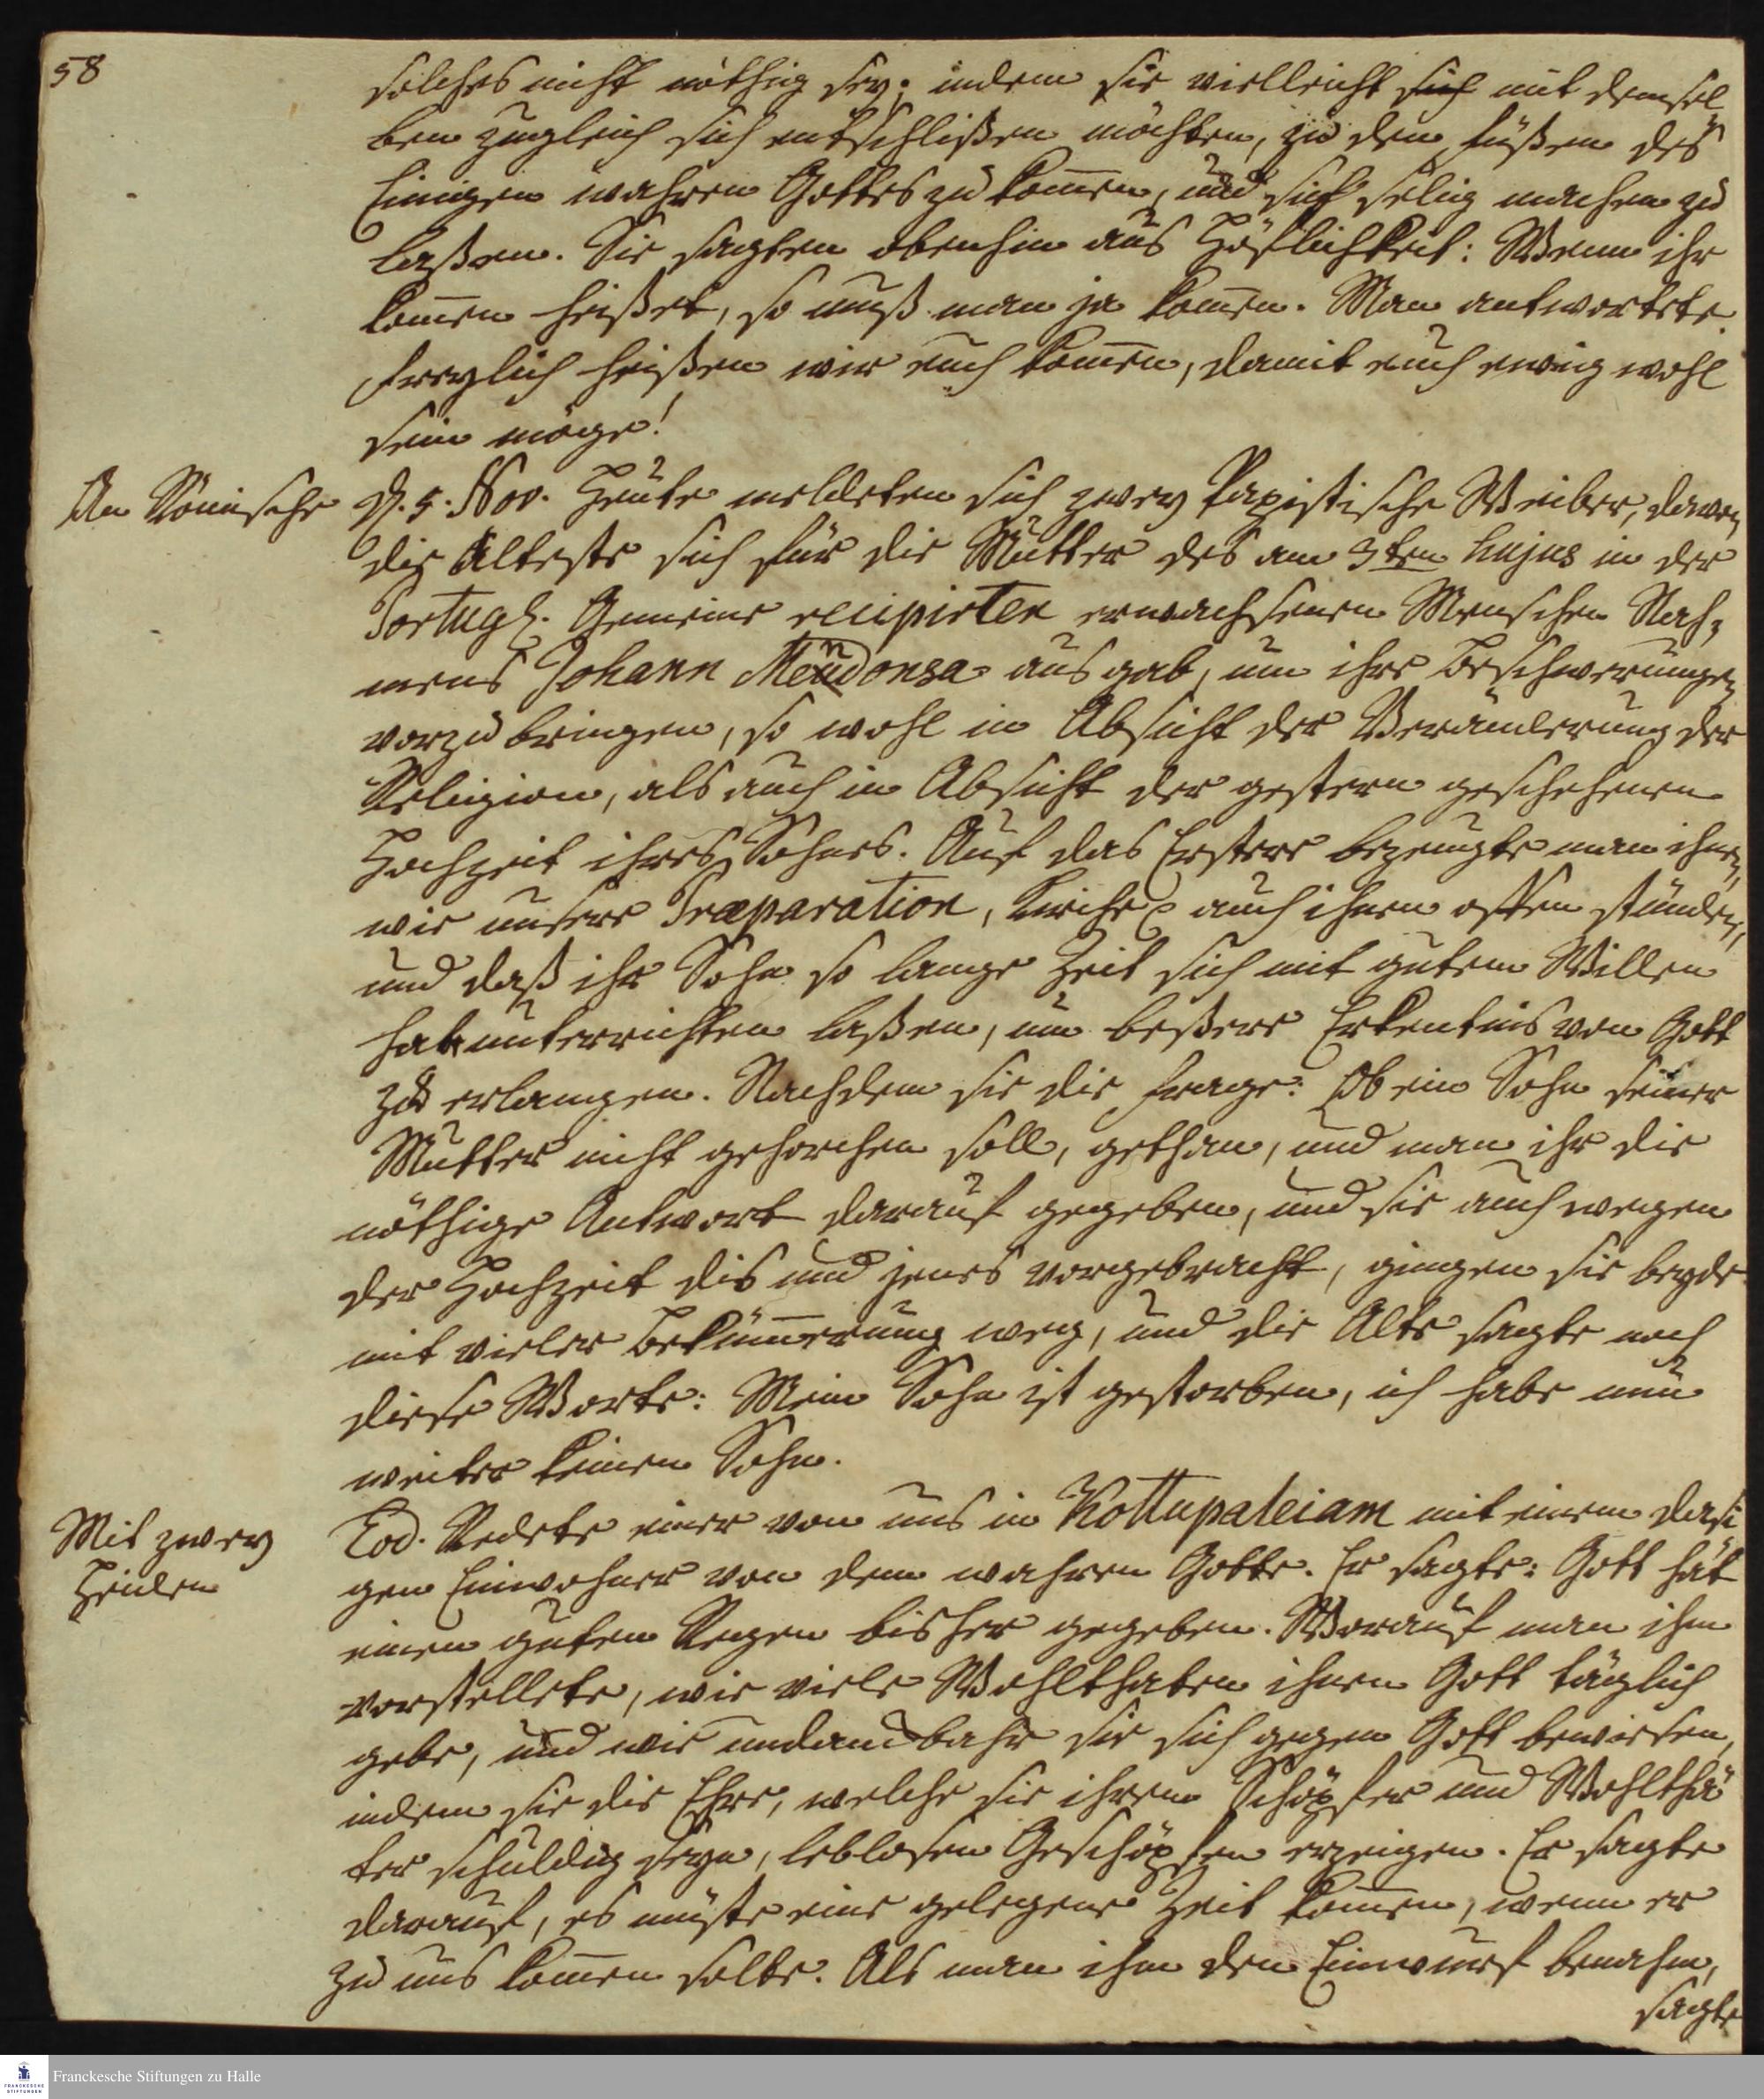 58
solches nicht nöthig sey; indem sie vielleicht sich mit demsel
ben zugleich sich entschlißen möchten, zu den Füßen des
Einigen wahren Gottes zu kom̅en, und sich selig machen zu
laßen. Sie sagten obenhin aus Höflichkeit: Wenn ihr
kom̅en heißet, so muß man ja kom̅en. Man antwortete
freylich heißen wir euch kom̅en, damit euch ewig wohl
sein möge!
An Römische
D. 5. Nov. Heute meldeten sich zwey Papistische Weiber, davon
die Älteste sich für die Mutter des am 3ten hujus in der
Portugs. Gemeine recipirten erwachsenen Menschen Nah,
mens Johann Mendonsa ausgab, um ihre Beschwerungen
vorzubringen, so wohl in Absicht der Veränderung der
Religion, als auch in Absicht der gestern geschehenen
Hochzeit ihres Sohnes. Auf das Erstere bezeugte man ihnen,
wie unsere Præparation, Kirche auch ihnen offen stünden,
und daß ihr Sohn so lange Zeit sich mit gutem Willen
hab unterrichten laßen, um beßere Erkentnis von Gott
zu erlangen. Nachdem sie die Frage: Ob ein Sohn seiner
Mutter nicht gehorchen soll, gethan, und man ihr die
nöthige Antwort darauf gegeben, und sie auch wegen
der Hochzeit dis und jenes vorgebracht, gingen sie beyde
mit vieler Beküm̅erung weg, und die Alte sagte noch
diese Worte: Mein Sohn ist gestorben, ich habe nun
weiter keinen Sohn.
Mit zwey
Heiden
Eod. Redete einer von uns in Kottupaleiam mit einem dasi
gen Einwohner von dem wahren Gotte. Er sagte: Gott hat
einen guten Regen bisher gegeben. Worauf man ihm
vorstellete, wie viele Wohlthaten ihnen Gott täglich
gebe, und wie undanckbahr sie sich gegen Gott bewiesen,
indem sie die Ehre, welche sie ihrem Schöpfer und Wohlthä
ter schuldig seyn, leblosen Geschöpfen erzeigen. Er sagte
darauf, es müste eine gelegene Zeit kom̅en, wenn er
zu uns kom̅en solte. Als man ihm den Einwurf benahm,
sagte
Franckesche Stiftungen zu Halle